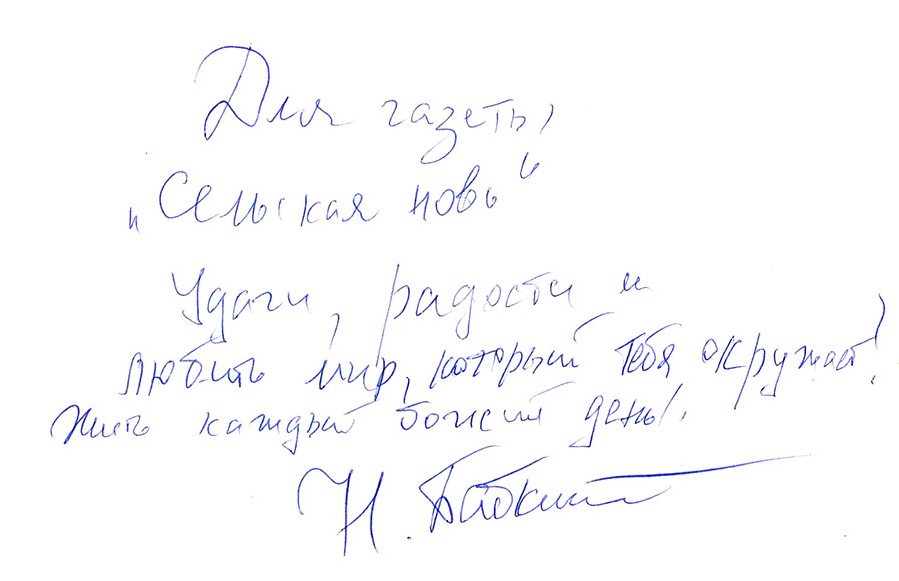 Для газеты
"Сельская новь"
Удачи, радости и
любить мир, который тебя окружает!
Жить каждый божий день!
Н. Бабкина